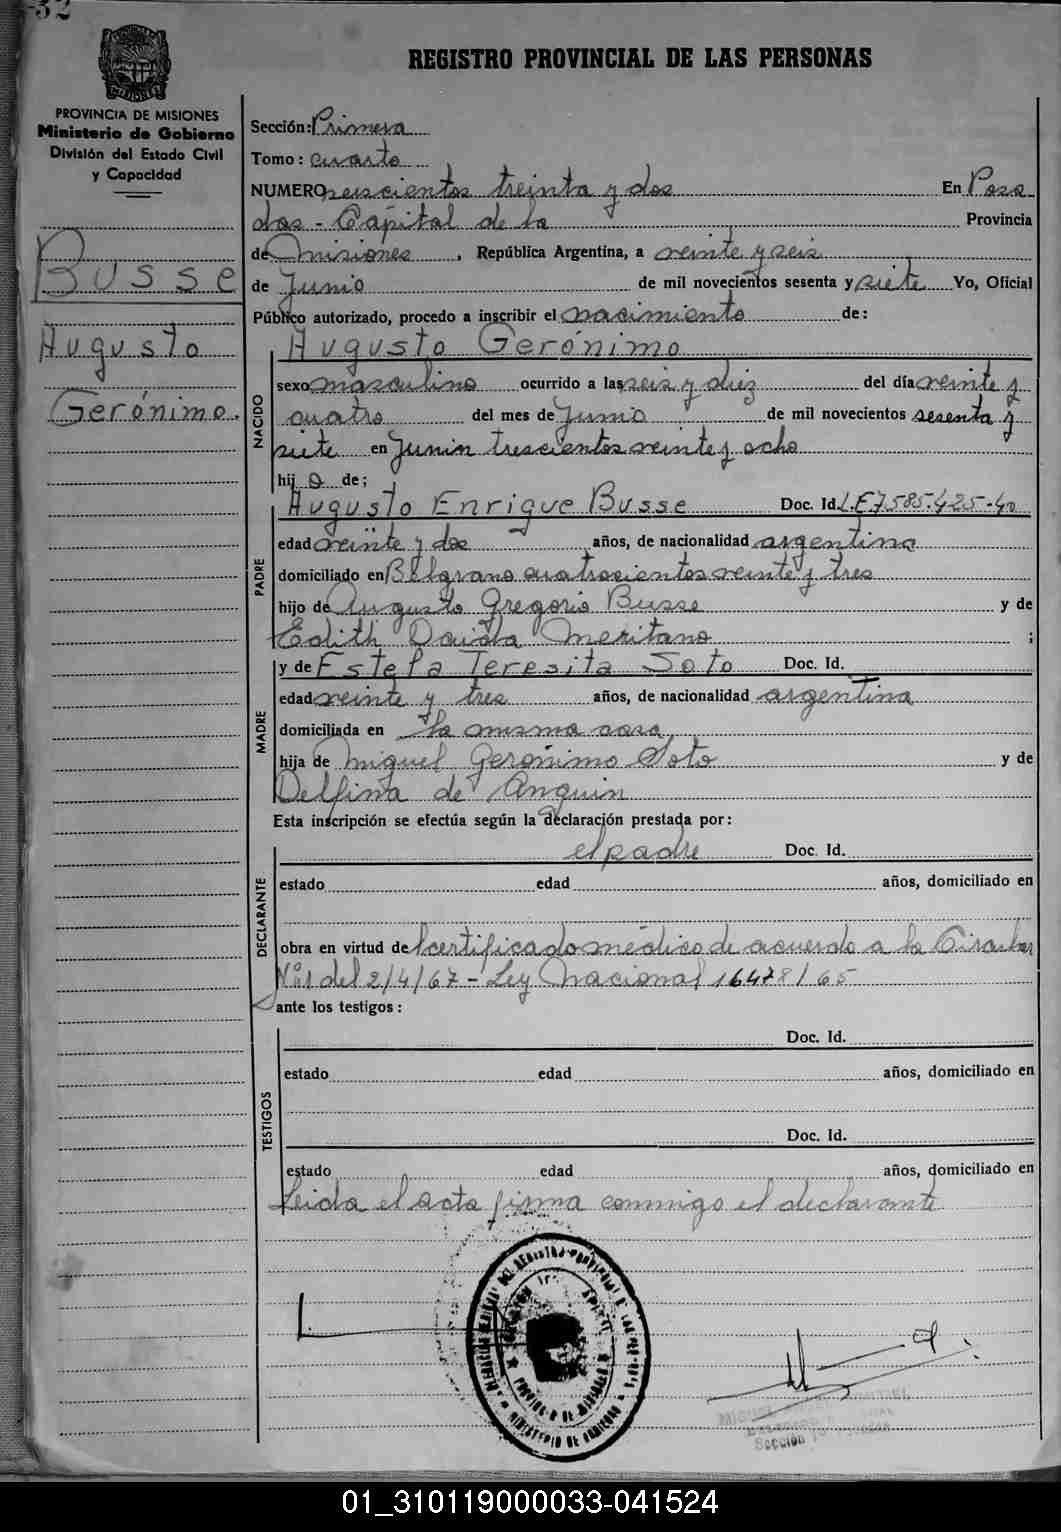 32
REGISTRO PROVINCIAL DE LAS PERSONAS
PROVINCIA DE MISIONES
Ministerio de Gobierno
División del Estado Civil
y Capacidad
Busse
Augusto
Gerónimo.
Sección: Primera
Tomo: cuarto
NUMERO seiscientos treinta y dos En Posa
das - Capital de la Provincia
de Misiones, República Argentina, a veinte y seis
de Junio de mil novecientos sesenta y siete Yo, Oficial
Público autorizado, procedo a inscribir el nacimiento de:
Augusto Gerónimo
NACIDO
sexo masculino ocurrido a las seis y diez del día veinte y
cuatro del mes de Junio de mil novecientos sesenta y
siete en Junin trescientos veinte y ocho
hijo de;
PADRE
Augusto Enrique Busse Doc. Id. L.E 7.585.425-
edad veinte y dos años, de nacionalidad argentina
domiciliado en Belgrano cuatrocientos veinte y tres
hijo de Augusto Gregorio Busse y de
Edith Meritano ;
y de Estela Teresita Soto Doc. Id.
MADRE
edad veinte y tres años, de nacionalidad argentina
domiciliada en la misma casa
hija de Miguel Gerónimo Soto y de
Delfina de Anguin
Esta inscripción se efectúa según la declaración prestada por:
DECLARANTE
el padre Doc. Id.
estado edad años, domiciliado en
obra en virtud del certificado médico de acuerdo a la Circular
Nº1 del 2/4/67 - Ley Nacional 16478/65
ante los testigos:
TESTIGOS
Doc. Id.
estado edad años, domiciliado en
Doc. Id.
estado edad años, domiciliado en
Leida el acta firma conmigo el declarante
MINISTERIO DE GOBIERNO
PROVINCIA DE MISIONES
MIGUEL
Sección
01_310119000033-041524